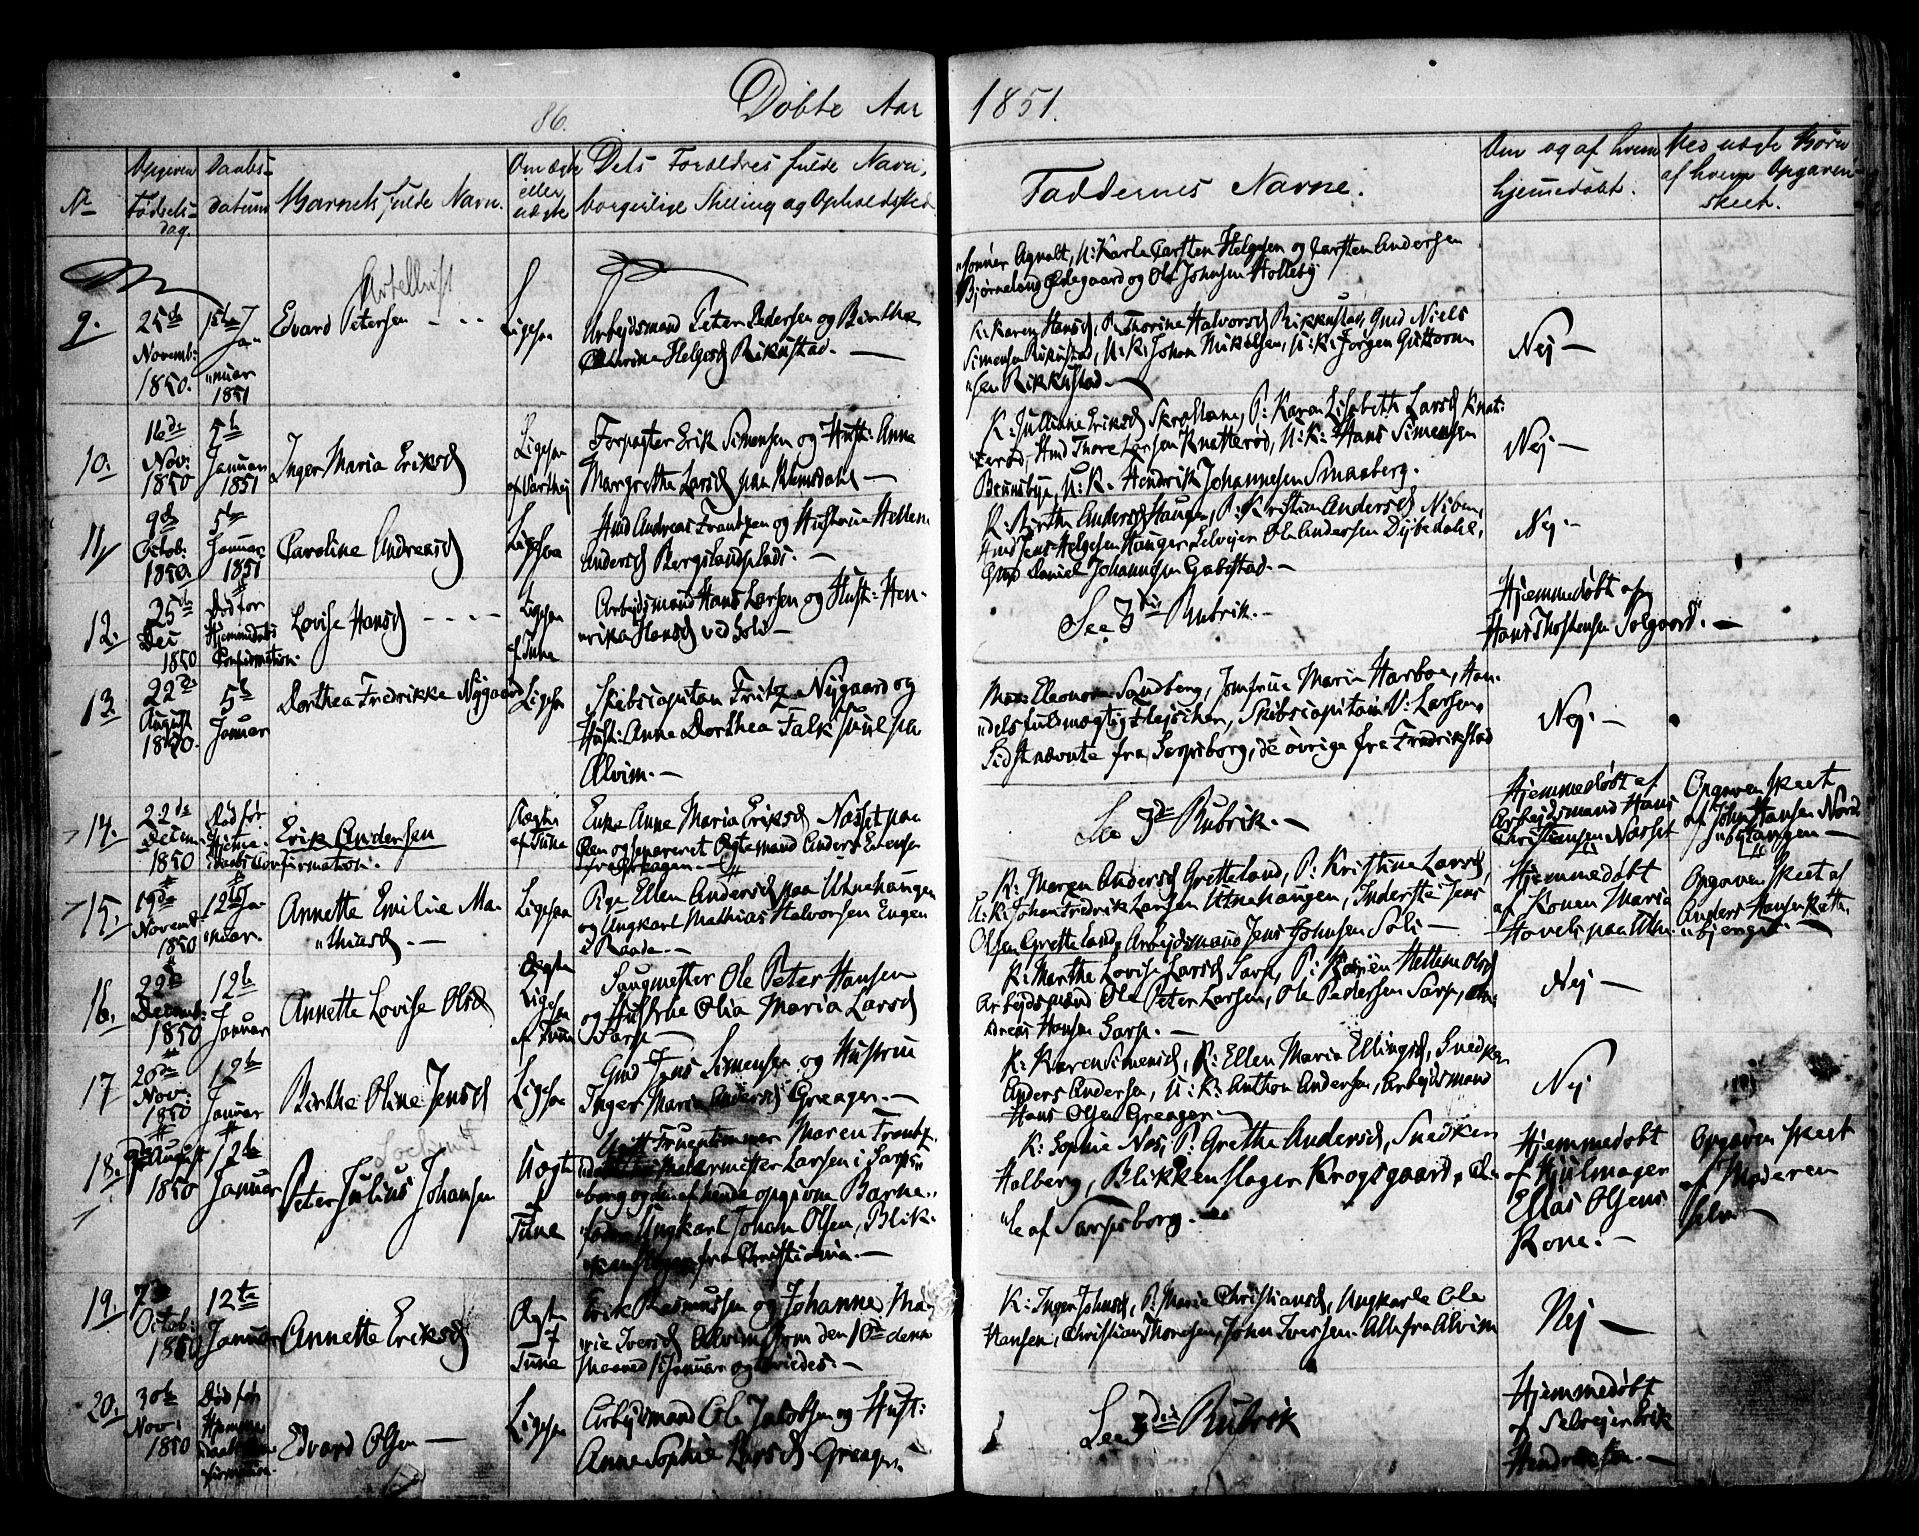 Døbte Aar 1851.
86.
No
Opgiven Fødsels-dag.
Daabs-datum
Barnets fulde Navn.
Om ægte eller uægte
Dets Forældres fulde Navn, borgerlige Stilling og Opholdsted
Faddernes Navne.
Om og af hvem hjemmedøbt.
Ved uægte Børn af hvem Opgaven skeet.
Carsten Helgesen og Carsten Andersen
Ødegaard og Ole Johnsen Holleby
9.
25de
Novemb:
1850.
Jan
"nuar
1851
Edvard Petersen
Ligesaa
Arbeidsmand Peter Pedersen og Birthe
Cathrine Helgesd Rikustad. —
K: Karen Hansd, P: Thorine Halvorsd Rikkustad, Gmd Niels
Simensen Rikustad, U:K: Johan Mikelsen, U:K: Jørgen Guttorm
"sen Rikkustad. —
Nej —
10.
16de
Nov:
1850
5te
Januar
1851
Inger Maria Eriksd
Ligesaa
Forpagter Erik Simensen og Hust: Anne
Margrethe Larsd paa
K: Julliane Eriksd P: Karen Lisabeth Larsd Knat-
"terød, Hmd Thore Larsen Knatterød, U:K: Hans Simensen
U:K. Hendrik Johannesen Smaaberg.
Nej —
11
9de
Octob:
1850.
5te
Januar
1851
Caroline Andreasd
Ligesaa
Hmd Andreas Frantzen og Hustrue Hellene
Andersd Bergslandplads. —
K. Birthe Andersd Haugen, P. Kristian Andersd
Hmd Jens Helgesen Haugen Selveier Ole Andersen Dybedahl,
Gmd Daniel Johannesen Gabestad. —
Nej —
12.
25de
Dec
1850
Død før
Hjemmedaabs
Confirmation
Lovise Hansd
Ligesaa
af Tune
Arbeidsmand Hans Larsen og Hust: Hen-
"rika Hansd ved Soli —
See 3die Rubrik. —
Hjemmedøbt af
Hans Thostensen Solgaard. —
13
22de
August
1850.
5te
Januar
Dorthea Fredrikke Nygaard
Ligesaa
Skibscapitan Fritz Nygaard og
Hust: Anne Dorthea Falk paa
Alvim. —
Eleonora Sandberg, Jomfrue Maria Harboe, Han-
"delsfuldmægtig Fleischer, Skibscapitain V: Larsen,
Sidstnævnte fra Sarpsborg, de øvrige fra Fredrikstad
Nej. —
14.
22de
Decem:
1850
Død før
Hjeme
daabs Confirmation.
Erik Andersen
Uægte
af Tune
Enke Anne Maria Eriksd Næsset paa
Øen og separeret Ægtemand Anders Evensen
See 3de Rubrik. —
Hjemmedøbt af
Arbeidsmand Hans
Christensen Næsset
Opgaven skeet
af John Hansen Nord
15.
19de
Novemb
1850
12te Ja-
"nuar.
Annette Emilie Ma-
"thiasd. —
Ligesaa
Pige Ellen Andersd paa Utnehaugen
og Ungkarl Mathias Halvorsen Eugen
i Raade. —
K: Maren Andersd Gretteland, P: Kristine Larsd,
U:K: Johan Fredrik Larsen Utnehaugen, Inderste Jens
Olsen Grette Land, Arbeidsmand Jens Johnsen Soli —
Hjemmedøbt
af Konen Maria
Opgaven skeet af
Anders Hansen
16.
22de
Decemb:
1850
12te
Januar
Annette Lovise Olsd
Ægte
Ligesaa
af Tune
Saugmester Ole Peter Hansen
og Hustrue Olia Maria Larsd
Sarp
K: Marthe Lovise Larsd Sarp, P: Karen Hellene Olsd
Arbeidsmænd Ole Peter Larsen, Ole Pedersen Sarp, An-
dreas Hansen Sarp. —
Nej —
17
20de
Nov:
1850
12te
Januar
Birthe Oline Jensd
Ligesaa
Gmd Jens Simensen og Hustrue
Inger Maria Andersd Greager. —
K: Karen Simensd, P: Ellen Maria Ellingsd, Snedker
Anders Andersen, U:K: Anthon Andersen, Arbeidsmand
Hans Olsen Greager —
Nej
18.
August
1850
12te
Januar
Peter Julius Johansen
Uægte
af
Tune
Fruentimmer Maren Frantz
Malermester Larsen i Sarps-
"borg og den af hende opgivne Barne-
fader Ungkarl Johan Olsen, Blik-
fra Christiania. —
K: Sophie Næs, P: Grethe Andersd, Snedker
Holberg, Blikkenslager Krogsgaard,
af Sarpsborg. —
Hjemmedøbt
af Hjulmager
Elias Olsens
Kone. —
Opgaven skeet
af Moderen
selv —
19.
7de
Octob:
1850
12te
Januar
Annette Eriksd
Ægte
Tune
Erik Rasmussen og Johanne Ma-
"rie Iversd Alvim
K: Inger Johnsd, P: Marie Christiansd, Ungkarle Ole
Hansen, Christian Thoresen, John Iversen. Alle fra Alvim
Nej —
20.
30te
Nov:
1850
Død før
Hjemme
daabs
Edvard Olsen —
Ligesaa
Arbeidsmand Ole Jacobsen og Hust:
Anne Sophie Larsd Greager.
See 3die Rubrik
Hjemmedøbt
af Selveier Erik
Hendriksen. —